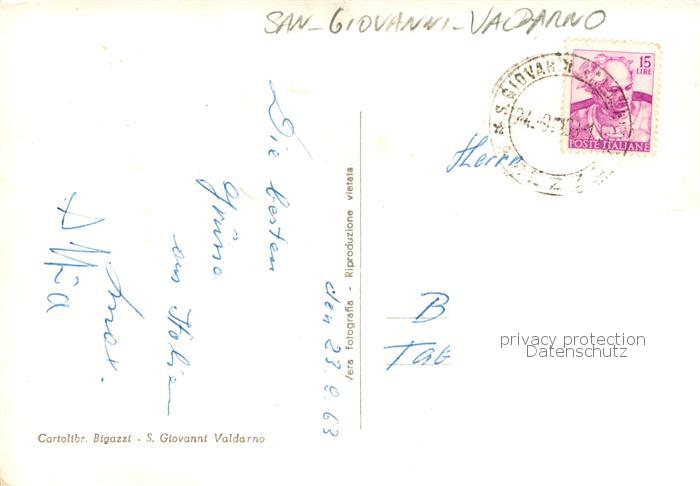 SAN-GIOVANNI-VALDARNO
15
LIRE
POSTE ITALIANE
S. GIOVAN
Herrn
Die besten
Grüsse
aus Italien
den 23.9.63
Vera fotografia - Riproduzione vietata
B
privacy protection
Datenschutz
Cartolibr. Bigazzi - S. Giovanni Valdarno